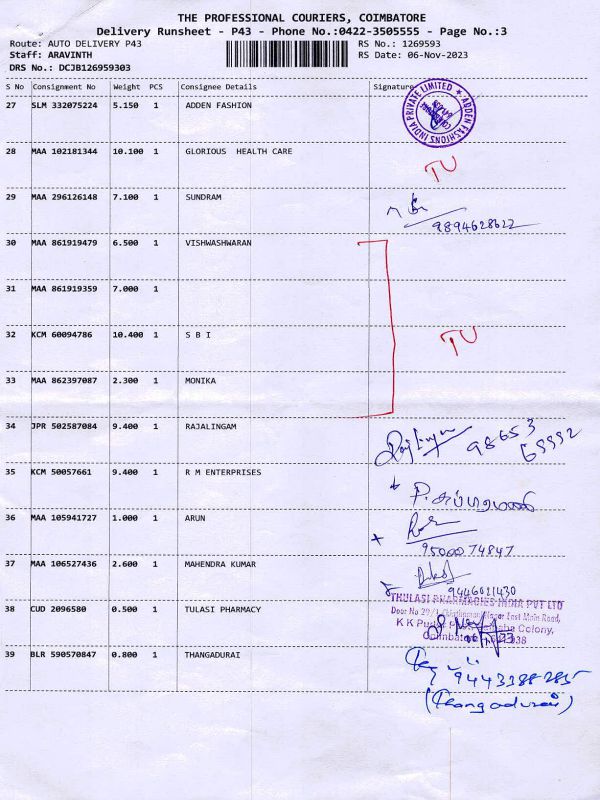 THE PROFESSIONAL COURIERS, COIMBATORE
Delivery Runsheet - P43 - Phone No.:0422-3505555 - Page No.:3
Route: AUTO DELIVERY P43 RS No.: 1269593
Staff: ARAVINTH RS Date: 06-Nov-2023
DRS No.: DCJB126959303
S No Consignment No Weight PCS Consignee Details Signature
27 SLM 332075224 5.150 1 ADDEN FASHION
ADDEN FASHIONS INDIA PRIVATE LIMITED
28 MAA 102181344 10.100 1 GLORIOUS HEALTH CARE
TU
29 MAA 296126148 7.100 1 SUNDRAM
9894628622
30 MAA 861919479 6.500 1 VISHWASHWARAN
31 MAA 861919359 7.000 1
32 KCM 60094786 10.400 1 S B I
TU
33 MAA 862397087 2.300 1 MONIKA
34 JPR 502587084 9.400 1 RAJALINGAM
98653
69992
35 KCM 50057661 9.400 1 R M ENTERPRISES
36 MAA 105941727 1.000 1 ARUN
9500074847
37 MAA 106527436 2.600 1 MAHENDRA KUMAR
9446021430
38 CUD 2096580 0.500 1 TULASI PHARMACY
THULASI PHARMACIES INDIA PVT LTD
Door No 29/1, Nagar East Main Road,
K K Pudur Colony,
Coimbatore
39 BLR 590570847 0.800 1 THANGADURAI
9443388285
(Thangadurai)